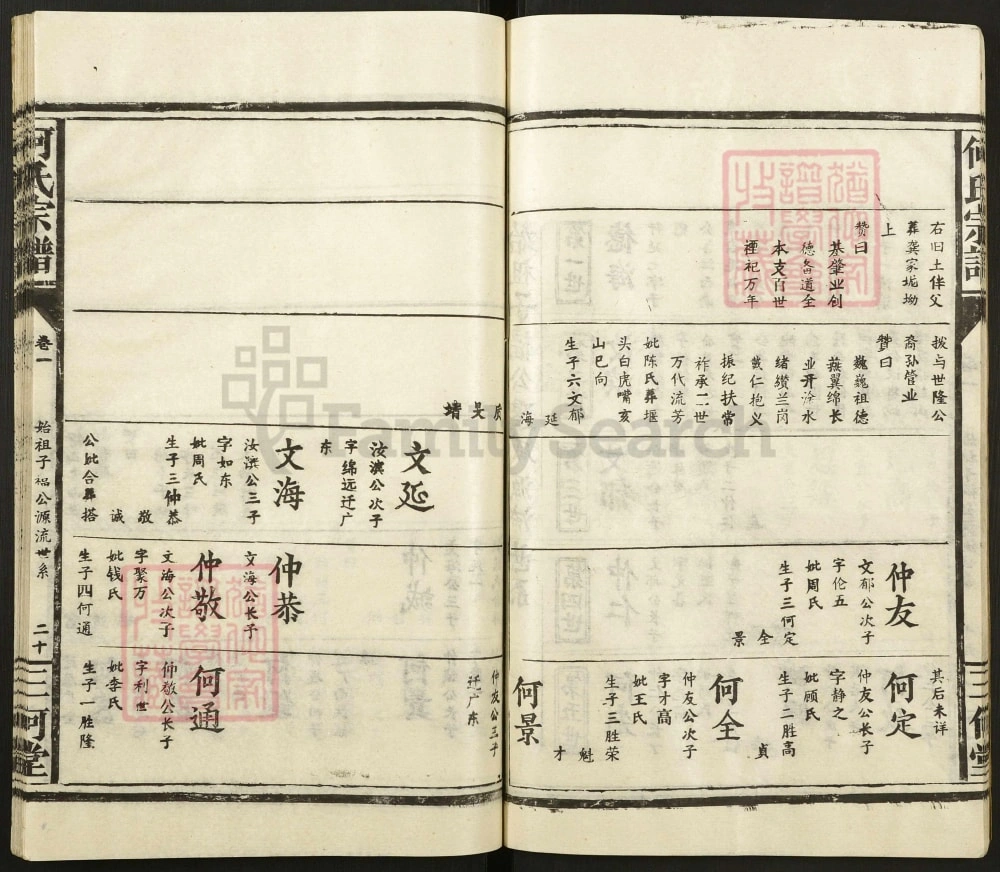 何氏宗譜
右旧土伴父
葬龚家垅坳
上
赞曰
基肇业创
德备道全
本支百世
禋祀万年
拨与世隆公
裔孙管业
赞曰
巍巍祖德
燕翼绵长
业开涂水
绪缵兰岗
戴仁抱义
振纪扶常
祚承二世
万代流芳
妣陈氏葬堰
头白虎嘴亥
山巳向
生子六文郁
延
海
质
旻
堉
仲友
文郁公次子
字伦五
妣周氏
生子三何定
全
景
其后未详
何定
仲友公长子
字静之
妣顾氏
生子二胜高
贞
何全
仲友公次子
字才高
妣王氏
生子三胜荣
魁
才
何景
三何堂
文延
汝濱公次子
字绵远迁广
东
文海
汝濱公三子
字如东
妣周氏
生子三仲恭
敬
诚
公妣合葬搭
仲恭
文海公长子
仲敬
文海公次子
字聚万
妣钱氏
生子四何通
仲友公三子
迁广东
何通
仲敬公长子
字利世
妣李氏
生子一胜隆
何氏宗譜
卷一
始祖子福公源流世系
二十
三何堂
FamilySearch